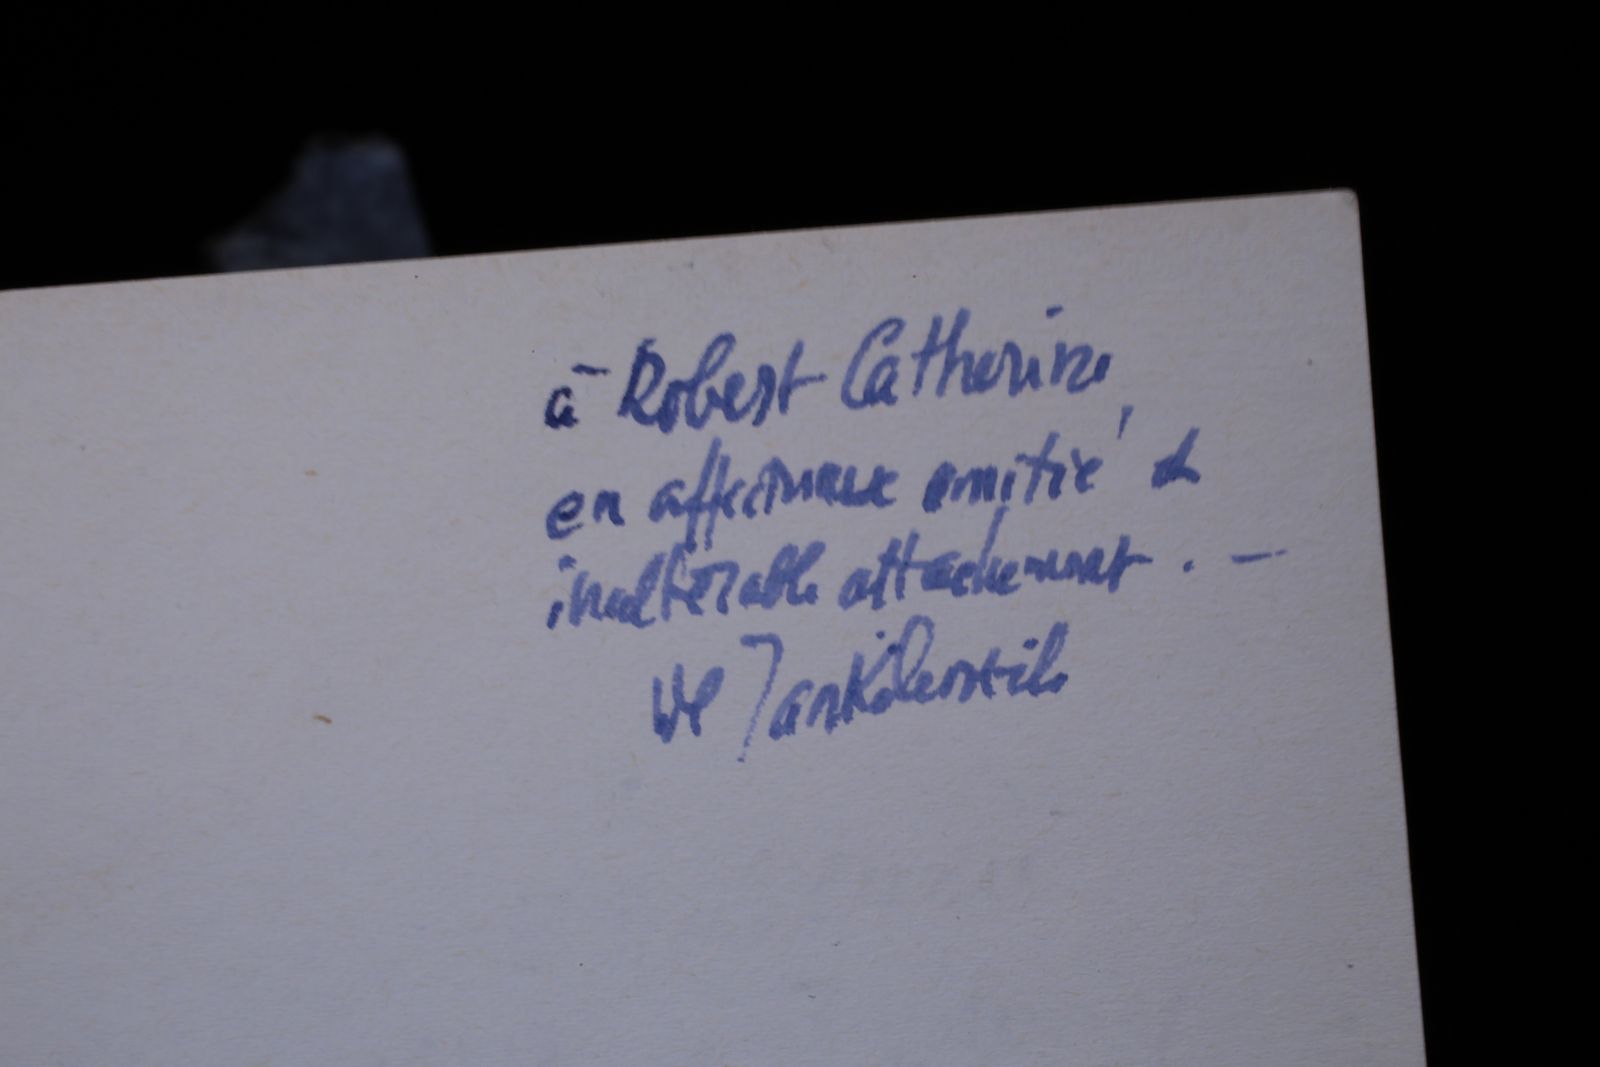 à Robert Catherine,
en affectueuse amitié &
inaltérable attachement. —
Vl Jankélévitch